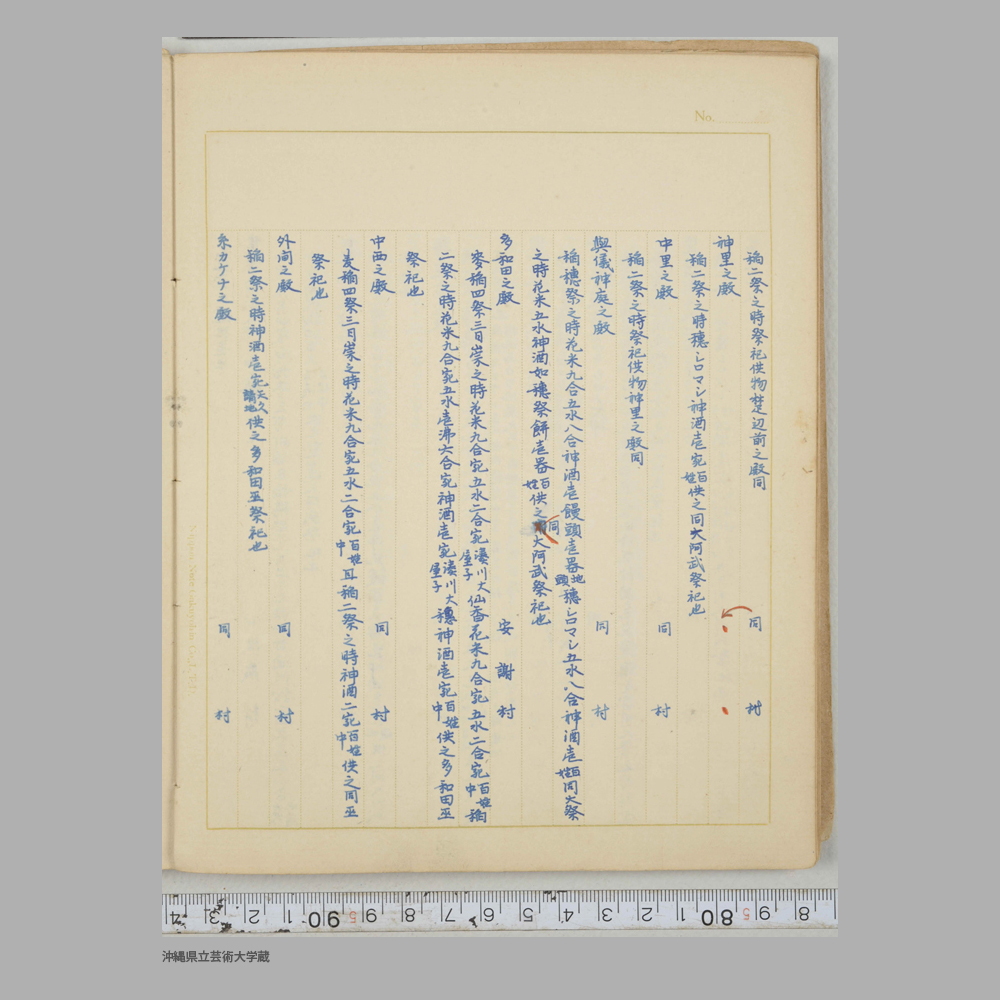 No.
稲二祭之時祭祀供物楚辺前之殿同
同 村
神里之殿
稲二祭之時穂シロマシ神酒壱宛百姓供之同大阿武祭祀也
中里之殿 同 村
稲二祭之時祭祀供物神里之殿同
與儀神庭之殿 同 村
稲穂祭之時花米九合五水八合神酒壱饅頭壱器地頭穂シロマシ五水八合神酒壱百姓同大祭
之時花米五水神酒如穂祭餅壱器百姓供之同大阿武祭祀也
多和田之殿 安謝村
麥稲四祭三日崇之時花米九合宛五水二合宛湊川大屋子仙香花米九合宛五水二合宛百姓中稲
二祭之時花米九合宛五水壱沸六合宛神酒壱宛湊川大屋子穂神酒壱宛百姓中供之多和田巫
祭祀也
中西之殿 同 村
麦稲四祭三日崇之時花米九合宛五水二合宛百姓中耳稲二祭之時神酒二宛百姓中供之同巫
祭祀也
外間之殿 同 村
稲二祭之時神酒壱宛天久請地供之多和田巫祭祀也
糸カケナ之殿 同 村
4 3 2 1 90 5 9 8 7 6 5 4 3 2 1 80 5 9 8
沖縄県立芸術大学蔵